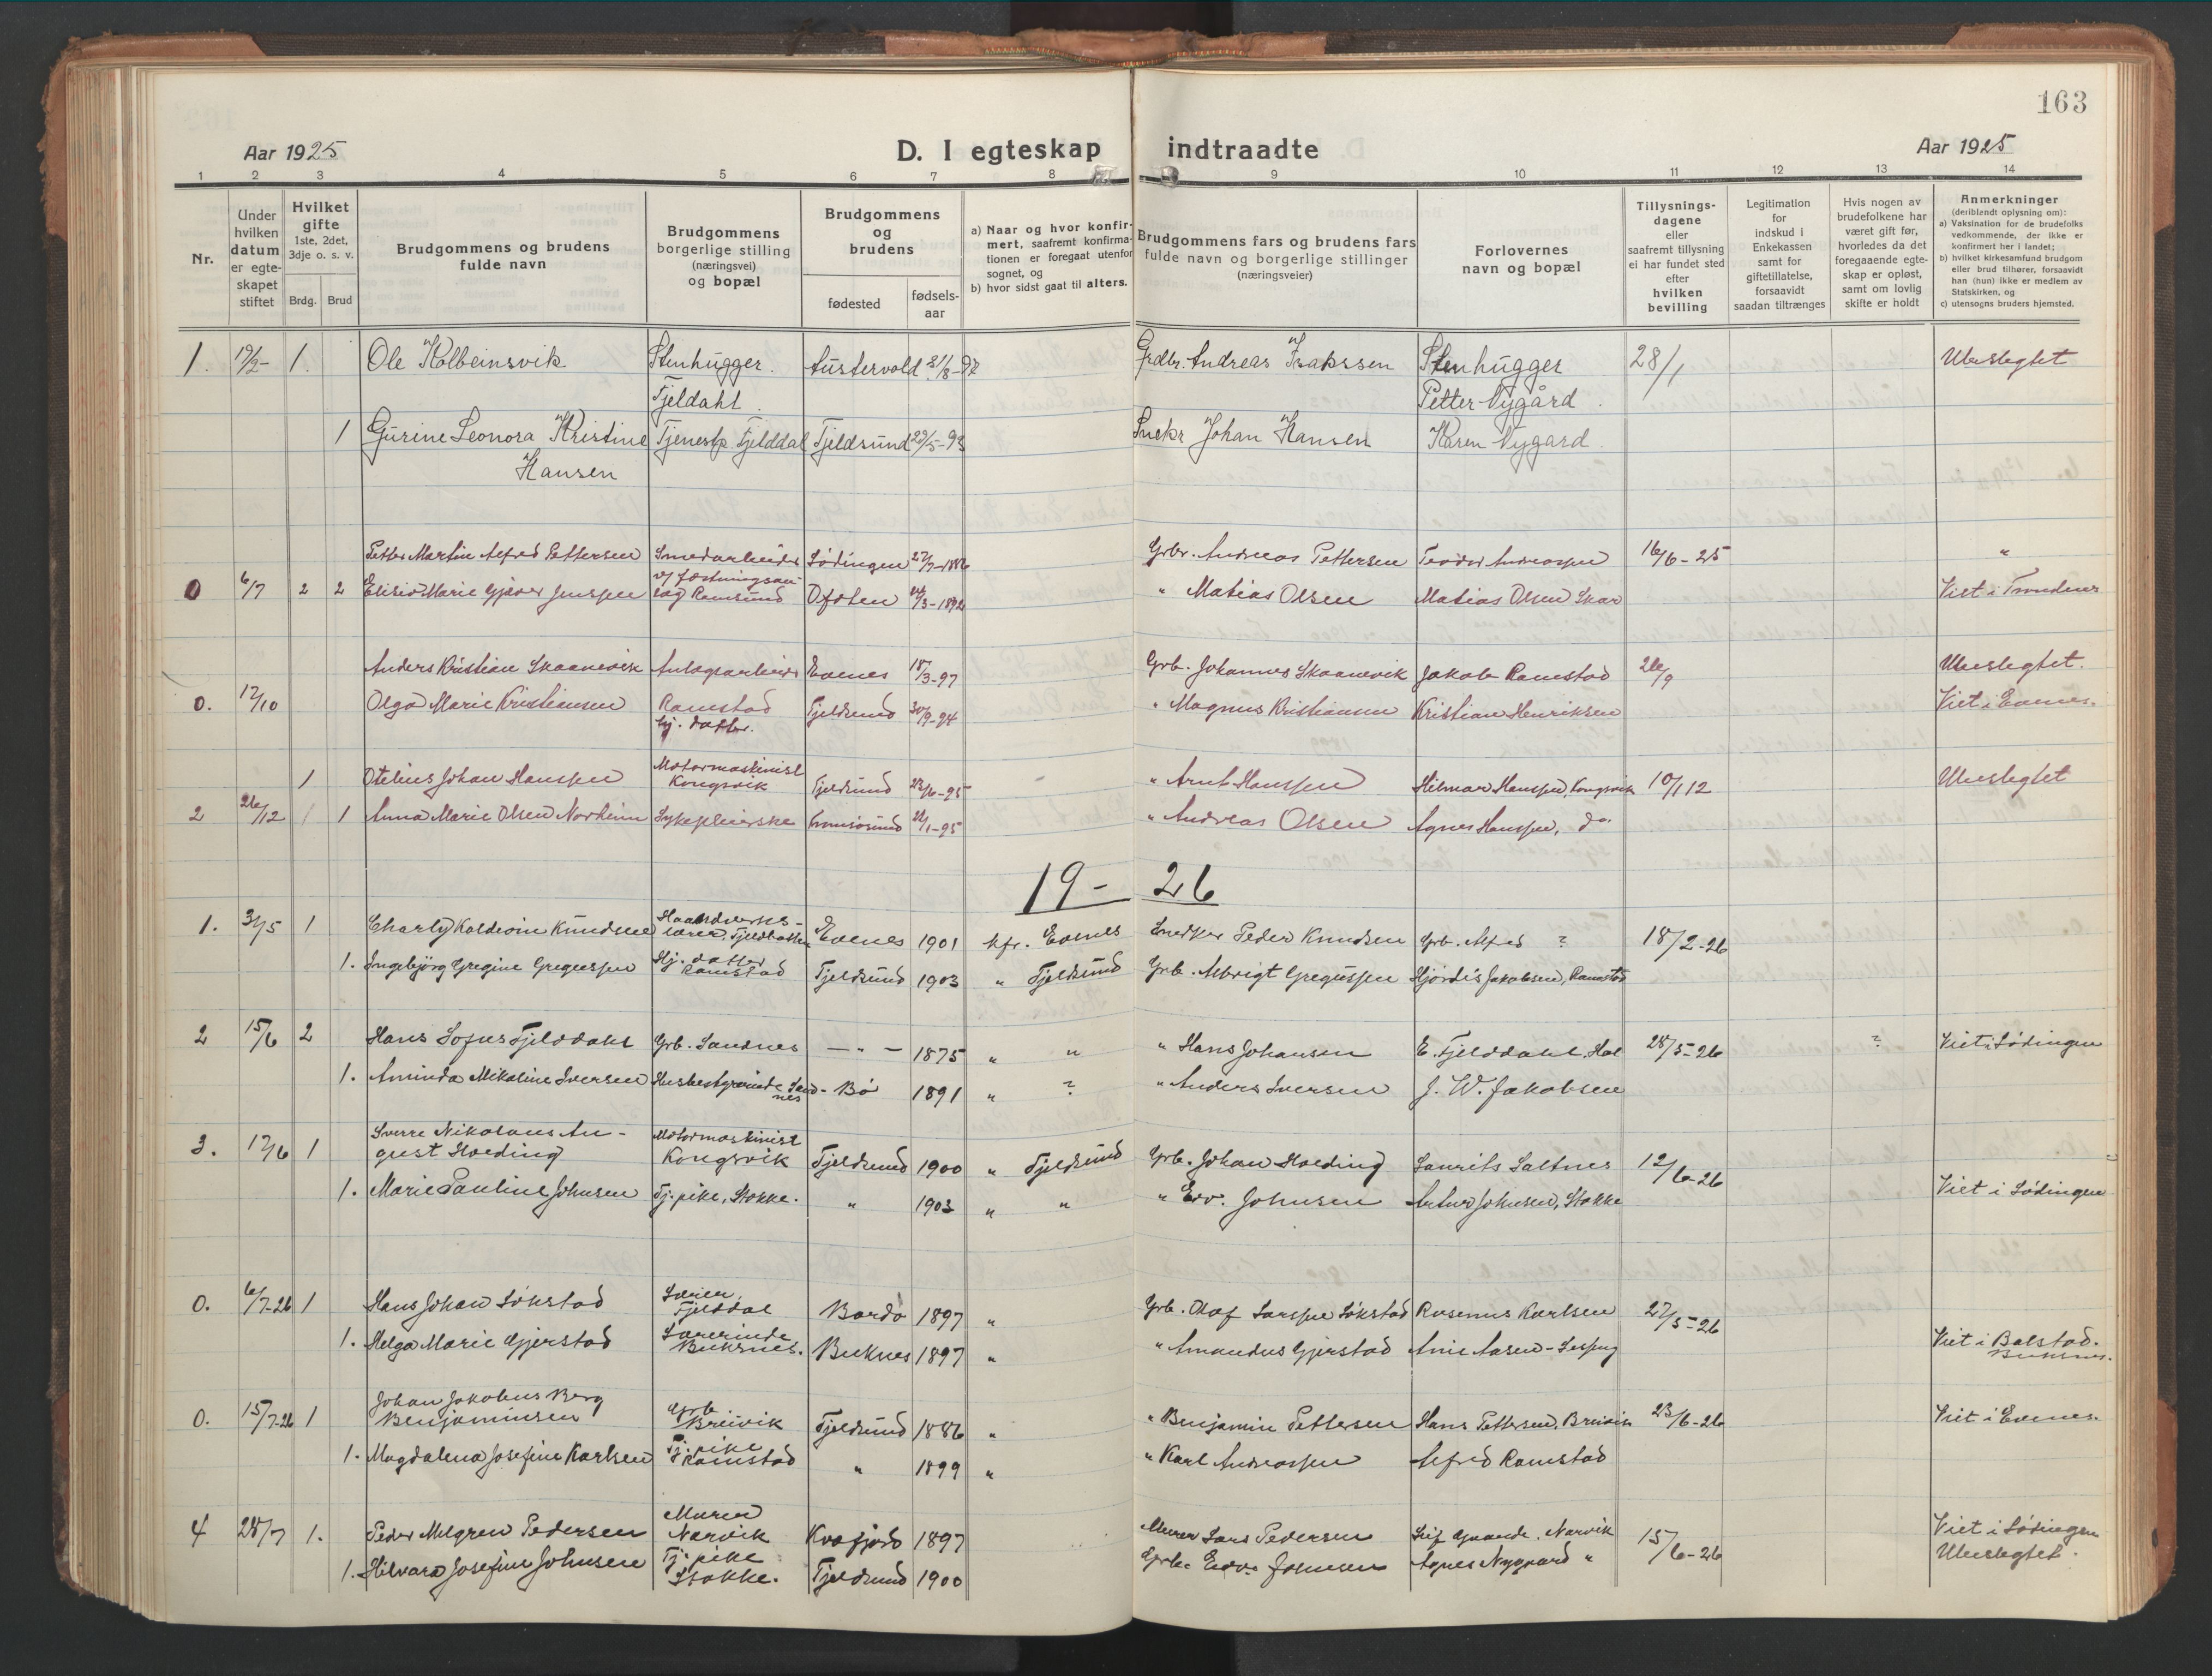 163
Aar 1925
D. I egteskap indtraadte
Aar 1925
1 2 3 4 5 6 7 8 9 10 11 12 13 14
Nr.
Under hvilken datum er egte-skapet stiftet
Hvilket gifte 1ste, 2det, 3dje o. s. v.
Brdg. Brud
Brudgommens og brudens fulde navn
Brudgommens borgerlige stilling (næringsvei) og bopæl
Brudgommens og brudens
fødested
fødsels-aar
a) Naar og hvor konfir-mert, saafremt konfirma-tionen er foregaat utenfor sognet, og
b) hvor sidst gaat til alters.
Brudgommens fars og brudens fars fulde navn og borgerlige stillinger (næringsveier)
Forlovernes navn og bopæl
Tillysnings-dagene eller saafremt tillysning ei har fundet sted efter hvilken bevilling
Legitimation for indskud i Enkekassen samt for giftetillatelse, forsaavidt saadan tiltrænges
Hvis nogen av brudefolkene har været gift før, hvorledes da det foregaaende egte-skap er opløst, samt om lovlig skifte er holdt
Anmerkninger
(deriblandt oplysning om):
a) Vaksination for de brudefolks vedkommende, der ikke er konfirmert her i landet;
b) hvilket kirkesamfund brudgom eller brud tilhører, forsaavidt han (hun) ikke er medlem av Statskirken, og
c) utensogns bruders hjemsted.
1. 19/2- 1. Ole Kolbeinsvik Stenhugger. Austervold 31/8-92 Grdbr. Andreas Isakssen Stenhugger 28/1 Ubeslegtet
Fjeldahl. Petter Nygård.
1 Gurine Leonora Kristine Tjenestp. Fjelddal Fjeldsund 29/5-93 Snekr Johan Hansen Karen Nygard.
Hansen
Petter Martin Alfred Pettersen Smedarbeider Lødingen 27/7-1886 Grbr. Andreas Pettersen Teodor Andreassen 16/6-25 "
0 6/7 2 2 Elisio Marie Gjæver Jenssen v/ festningsan-
læg Ramsund Ofoten 1892 " Matias Olsen Matias Olsen Skar Viet i Trondenes
Anders Kristian Skaanevik Anlægsarbeider Evenes 18/3-97 Grb. Johannes Skaanevik Jakob Ramstad 26/9 Ubeslegtet.
0. 12/10 Olga Marie Kristiansen Ramstad Fjeldsund 30/9-94 " Magnus Kristiansen Kristian Henriksen Viet i Evenes.
hj. datter.
1 Otelius Johan Hanssen Motormaskinist
Kongsvik Fjeldsund 23/6-95 " Arnt Hanssen Hilmar Hanssen, Kongsvik 10/12 Ubeslegtet
2 26/12 1 1 Anna Marie Olsen Norheim Sykepleierske 21/1-95 " Andreas Olsen Agnes Hanssen, do.
19 - 26
1. 31/5 1 Charly Kaldwin Knudsen Haandverks-
lærer, Fjeldbakken Evenes 1901 kfr. Evenes Snedker Peder Knudsen Grb. Alfred ? 18/2-26
1. Ingebjørg Gregine Gregussen Hj. datter
Ramstad Fjeldsund 1903 " Fjeldsund Grb. Albrigt Gregussen Hjørdis Jakobsen, Ramstad
2 15/6 2 Hans Sofus Fjelddahl Grb. Sandnes — " — 1875 " " " Hans Johansen E. Fjelddahl, Hol 28/5-26 ? Viet i Lødingen
1. Aminda Mikaline Iversen Husbestyrerinde Sand-
nes Bø 1891 " ? " Anders Iversen J. W. Jakobsen
3. 17/6 1 Sverre Nikolaus Au-
gust Hveding Motormaskinist
Kongsvik Fjeldsund 1900 " Fjeldsund Grb. Johan Hveding Laurits Saltnes 12/6-26
1. Marie Pauline Johnsen Tj. pike, Stokke. " 1903 " " " Edv. Johnsen Artur Johnsen, Stokke Viet i Lødingen
0. 6/7-26 1 Hans Johan Sökstad Lærer,
Fjelddal Bardo 1897 " Grb. Olaf Larssen Sökstad Rasmus Karlsen 27/5-26
1. Helga Marie Gjerstad Lærerinde
Buksnes. Buknes 1897 " " Amandus Gjerstad Viet i Balstad.
Buksnes.
0. 15/7-26 1 Johan Jakobus Berg
Benjaminsen Grb.
Breivik Fjeldsund 1886 " " Benjamin Pettersen Hans Pettersen, Breivik 23/6-26 Viet i Evenes.
1. Magdalena Josefine Karlsen Tj. pike
Ramstad " 1899 " " Karl Andreassen Alfred Ramstad
4 28/7 1. Peder Melgren Pedersen Murer
Narvik Kvæfjord 1897 Murer Lars Pedersen Leif Narvik 15/6-26 Viet i Lødingen
1. Hilvara Josefine Johnsen Tj. pike
Stokke. Fjeldsund 1900 Grb. Edv. Johnsen Agnes Nygaard " Ubeslegtet.